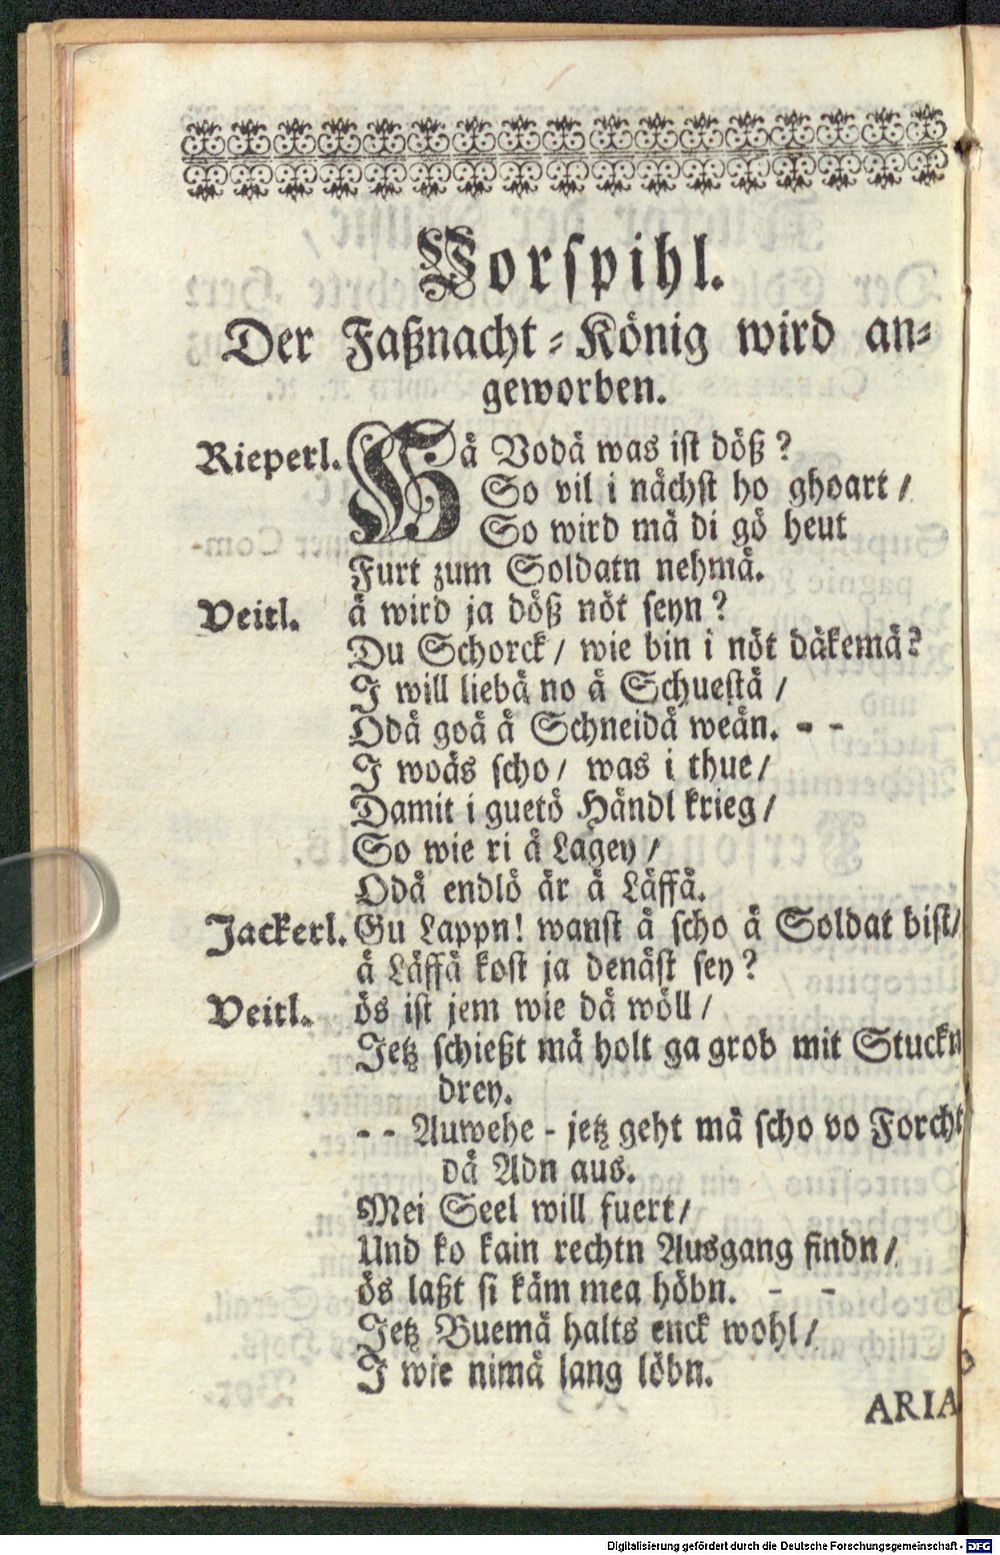 Vorspihl.
Der Faßnacht-König wird an-
geworben.
Rieperl. Hä Vodä was ist döß?
So vil i nächst ho ghoart /
So wird mä di gö heut
Furt zum Soldatn nehmä.
Veitl. ä wird ja döß nöt seyn?
Du Schorck / wie bin i nöt däkemä?
J will liebä no ä Schuestä /
Odä goä ä Schneidä weän. - -
J woäs scho / was i thue /
Damit i guetö Händl krieg /
So wie ri ä Lagey /
Odä endlö är ä Läffä.
Jackerl. Gu Lappn! wanst ä scho ä Soldat bist /
ä Läffä kost ja denäst sey?
Veitl. ös ist jem wie dä wöll /
Jetz schießt mä holt ga grob mit Stuckn
drey.
- - Auwehe - jetz geht mä scho vo Forcht
dä Adn aus.
Mei Seel will fuert /
Und ko kain rechtn Ausgang findn /
ös laßt si käm mea höbn. - -
Jetz Buemä halts enck wohl /
J wie nimä lang löbn.
ARIA
Digitalisierung gefördert durch die Deutsche Forschungsgemeinschaft - DFG